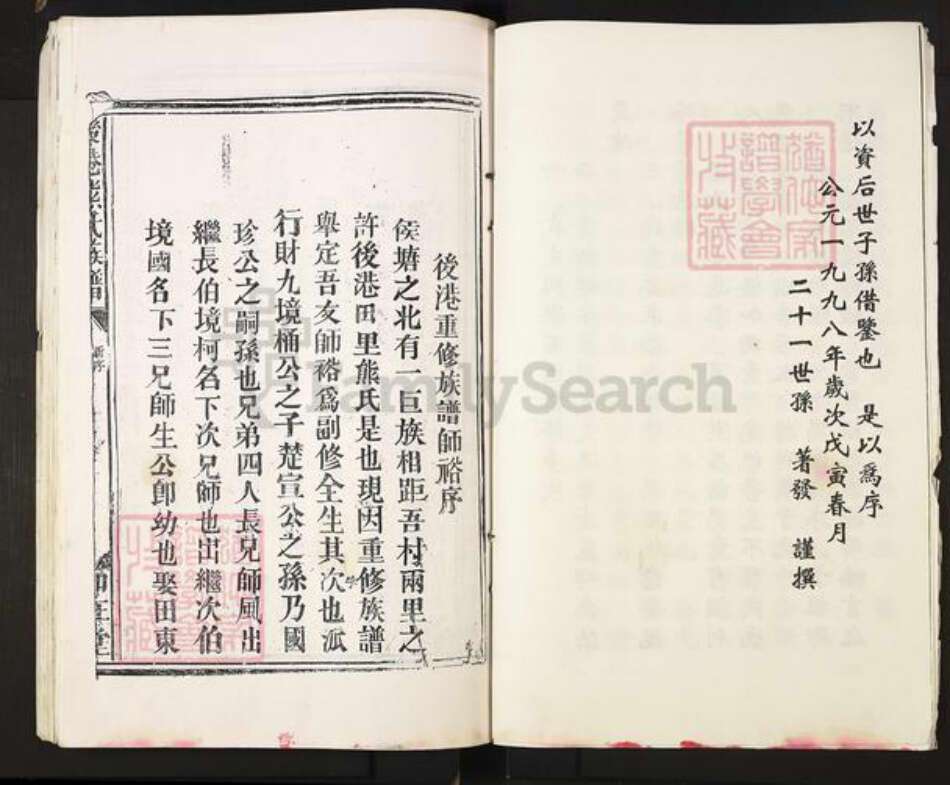 以資后世子孫借鑒也　是以為序
公元一九九八年歲次戊寅春月
二十一世孫　著發　謹撰
後港重修族譜師裕序
侯塘之北有一巨族相距吾村兩里之
許後港田里熊氏是也現因重修族譜
舉定吾友師裕爲副修全生其次也派
行財九境桶公之子楚宣公之孫乃國
珍公之嗣孫也兄弟四人長兄師風出
繼長伯境柯名下次兄師也出繼次伯
境國名下三兄師生公卽幼也娶田東
熊氏族譜
FamilySearch
譜學會
收藏